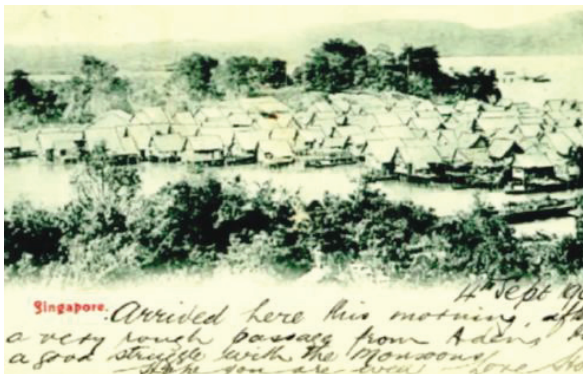 4th Sept 19
Singapore. Arrived here this morning, after
a very rough passage from Aden,
a good struggle with the Monsoons
Hope you are well Love